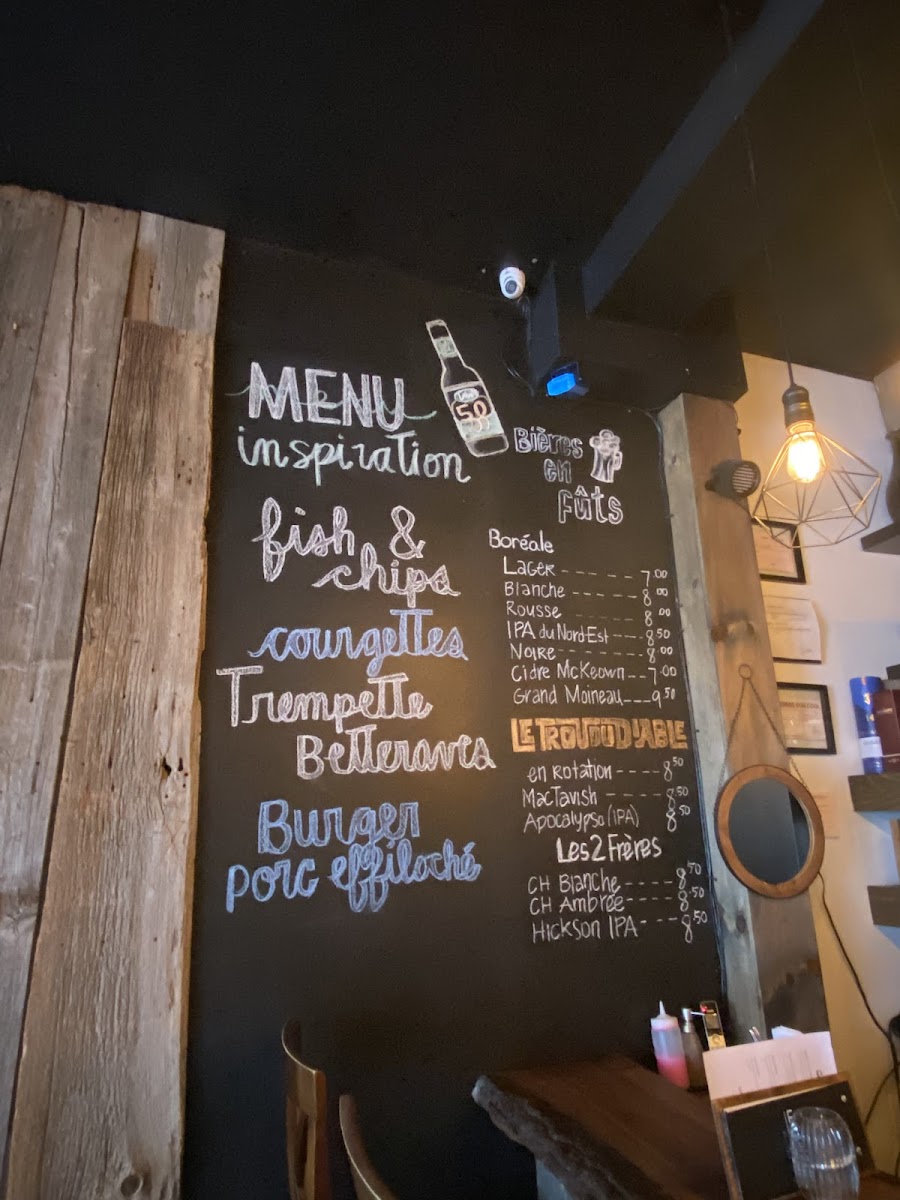 MENU
inspiration
50
fish &
chips
courgettes
Trempette
Betteraves
Burger
porc effiloché
Bières
en
fûts
Boréale
Lager ------ 7.00
Blanche ------ 8.00
Rousse ------ 8.00
IPA du Nord-Est ---- 8.50
Noire ---- 8.00
Cidre McKeown --- 7.00
Grand Moineau --- 9.50
LE TROU DU DIABLE
en rotation ---- 8.50
MacTavish ---- 8.50
Apocalypso (IPA) 8.50
Les 2 Frères
CH Blanche ----- 8.50
CH Ambrée ---- 8.50
Hickson IPA ---- 8.50